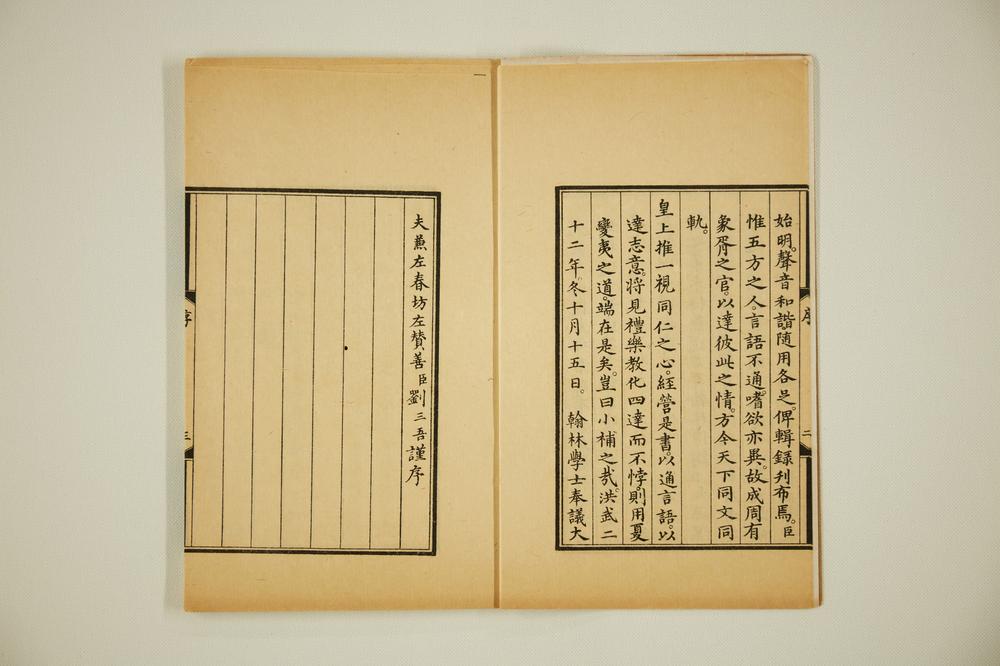 始明。聲音和諧。隨用各足。俾輯錄刋布焉。臣
惟五方之人。言語不通。嗜欲亦異。故成周有
象胥之官。以達彼此之情。方今天下同文同
軌。
皇上推一視同仁之心。經營是書。以通言語。以
達志意。將見禮樂教化四達而不悖。則用夏
變夷之道。端在是矣。豈曰小補之哉。洪武二
十二年。冬十月十五日。 翰林學士奉議大
序
二
夫兼左春坊左贊善臣劉三吾謹序
序
三